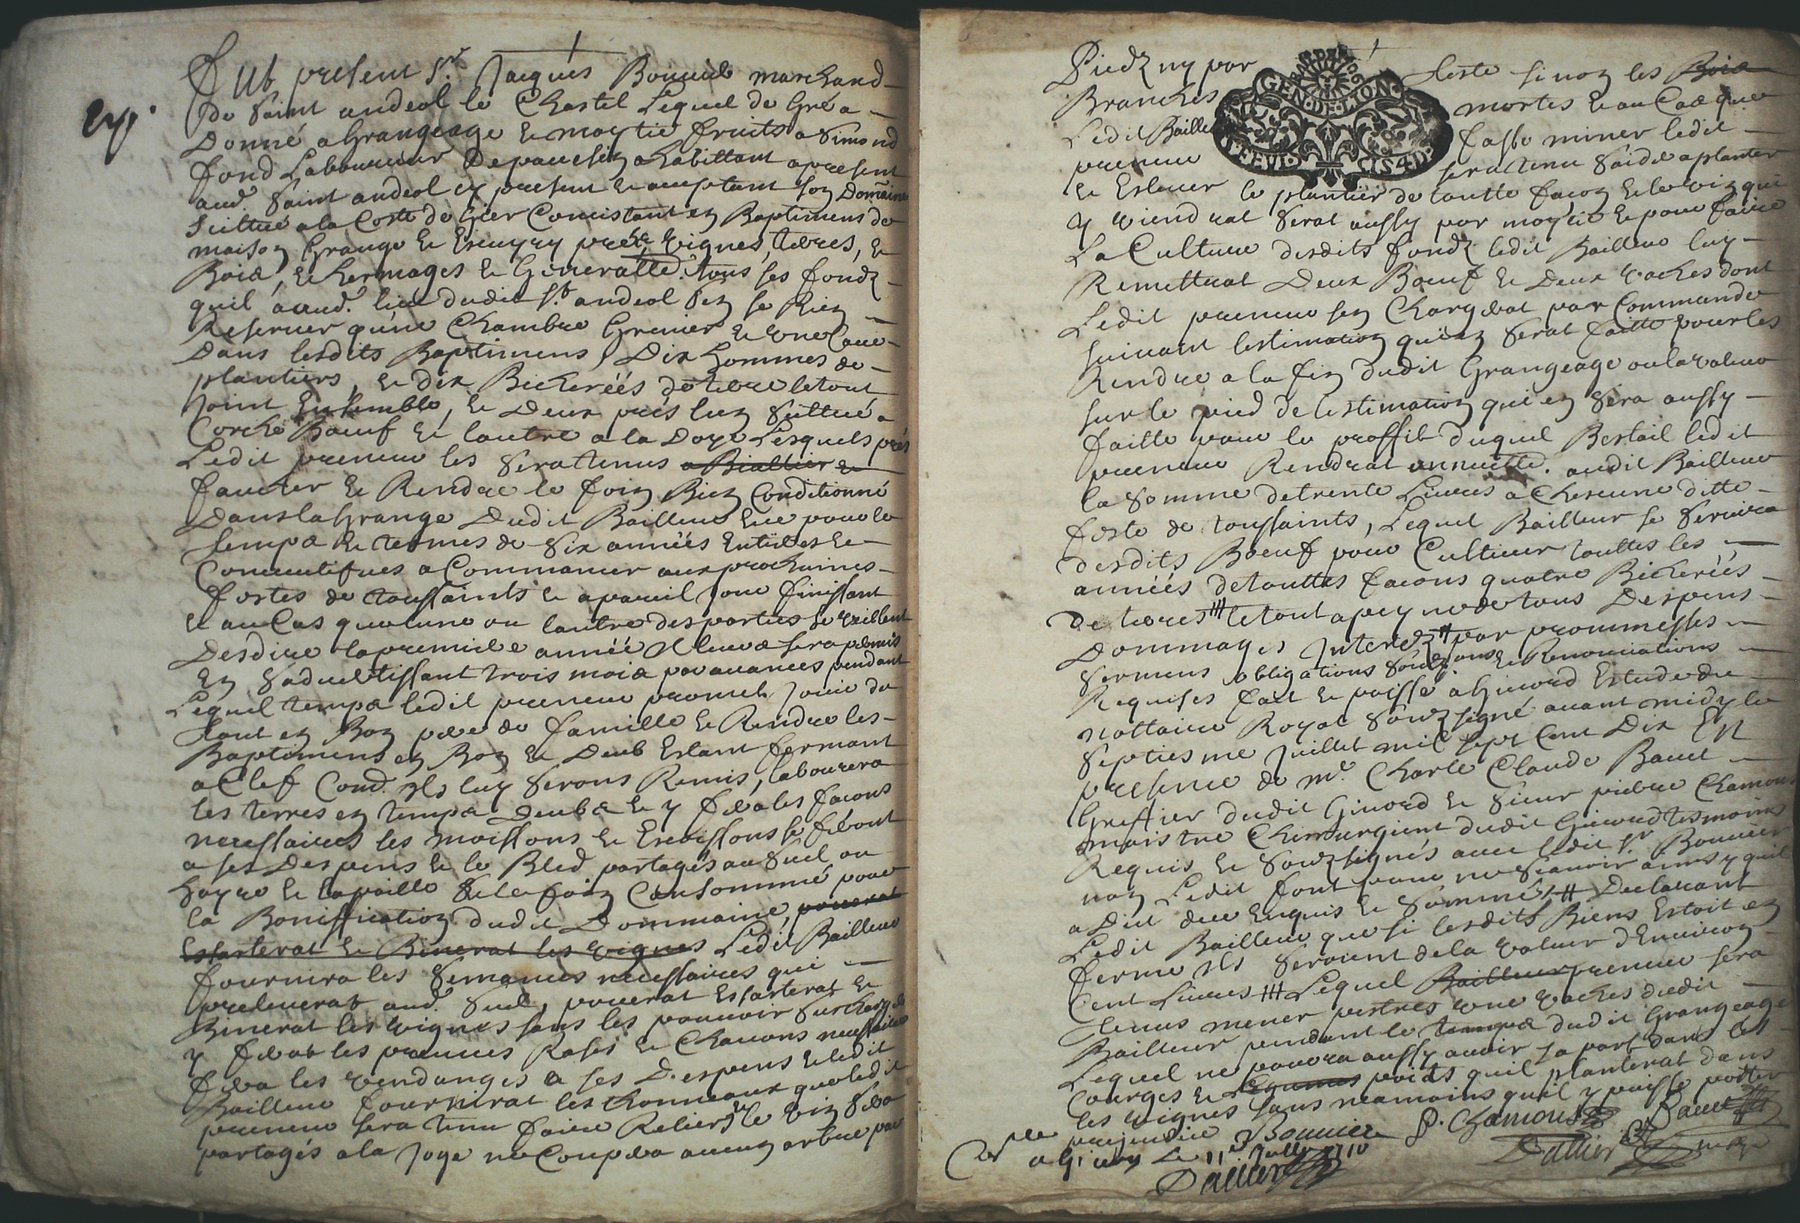 Fut present Sr. Jacques Bonnier marchand
de Saint andeol le Chastel Lequel de Gré a
Donné a Grangeage et moytié fruits a Simond
fond Laboureur habittant apresent
aud. Saint andeol cy present et acceptant son Domaine
Scittué a la Coste de Gier Concistant en Baptimens de
maison Grange et Escuyry prés vignes, terres, et
Bois, et hermages et Generallt. tous ses fondz
quil a aud. lieu dudit St. andeol sen se Rien
Reserver qune Chambre Grenier et une Cave
Dans lesdits Baptimens, Dix hommes de
plantiers, et dix Bicherées de terre le tout
Joint Ensemble, et Deux prés lun scittué a
Corche Boeuf et lautre a la Doye Lesquels prés
Ledit preneur les sera tenus
faucher et Rendre le foin Bien Conditionné
Dans la Grange Dudit Bailleur Et ce pour le
temps et termes de six années Entieres et
Consecutifves a Commancer aux prochaines
festes de toussaints et a pareil jour finissant
et au Cas que lune ou lautre des parties se veillent
Desdire la premiere année Il leur sera permis
En sadvertissant trois mois par avances pendant
Lequel temps ledit preneur promet Jouir du
tout en Bon pere de famille et Rendre les
Baptimens en Bon et Deub Estant fermant
a Clef Cond. Ils luy seront Remis, labourera
les terres en temps Deubs et y fera les facons
necessaires les moissons et Escossons se feront
a ses Despens et le Bled partagés au Suel ou
hayre et la paille et le foin Consommé pour
la Boniffication dudit Dommaine, pourrat
Essarterat et Binerat les vignes Ledit Bailleur
fournira les semances necessaires qui
preleverat aud. Suel, pourrat Essarterat et
Binerat les vignes sans les pouvoir surcharger
y ferat les preuves Rases et Chavons necessaires
fera les vendanges a ses Despens et ledit
Bailleur fournirat les thonneaux que ledit
preneur sera tenu faire Relier le vin sera
partagés a la Joye ne Coupera aucun arbre par
Piedz ny par teste sinon les Bois
Branches mortes et au Cas que
Ledit Bailleur fasse miner ledit
preneur sera tenu saider a planter
GEN·DE·LION
et Eslever le plantier de toutte facon et le vin qui
y viendrat serat aussy par moytié et pour faire
La Culture desdits fondz ledit Bailleur luy
Remettrat Deux Boeuf et Deux vaches dont
Ledit preneur sen Chargerat par Commande
suivant lestimation quien serat faitte pour les
Rendre a la fin dudit Grangeage ou la valeur
sur le pied de lestimation qui en sera aussy
faitte pour le proffit duquel Bestail ledit
preneur Rendrat annuellt. audit Bailleur
la somme de trente Livres a Chescune ditte
feste de toussaints, Lequel Bailleur se servira
desdits Boeuf pour Cultiver touttes les
années de touttes facons quatre Bicherées
De terres le tout a peyne de tous Despens
Dommages Interetz par prommesses
sermens obligations soubmissions et Renonciations
Requises fait et passé a Givord Estude du
nottaire Royal soubzsigné avant midy le
septiesme Juillet mil sept Cent Dix En
presence de me. Charle Claude Bauet
Greffier dudit Givord et sieur pierre Chamoux
maistre Chirurgient dudit Givord tesmoins
Requis et soubzsignés avec ledit sr. Bonnier
non Ledit fond pour ne scavoir ainsy quil
a Dict de ce Enquis et sommé, Declarant
Ledit Bailleur que si lesdits Biens Estoit en
ferme Ils seroient de la valeur d'Environ
Cent Livres Lequel Bailleur preneur sera
tenus mener une vaches dudit
Bailleur pendant le temps dudit Grangeage
Lequel ne pourra aussy avoir sa part dans les
Courges et Legumes poids quil planterat dans
les vignes sans neamoins quil y puisse porter
prejudice Bonnier P. Chamoux Bauet
a Givord Le 11e. Juillet 1710
Dallier